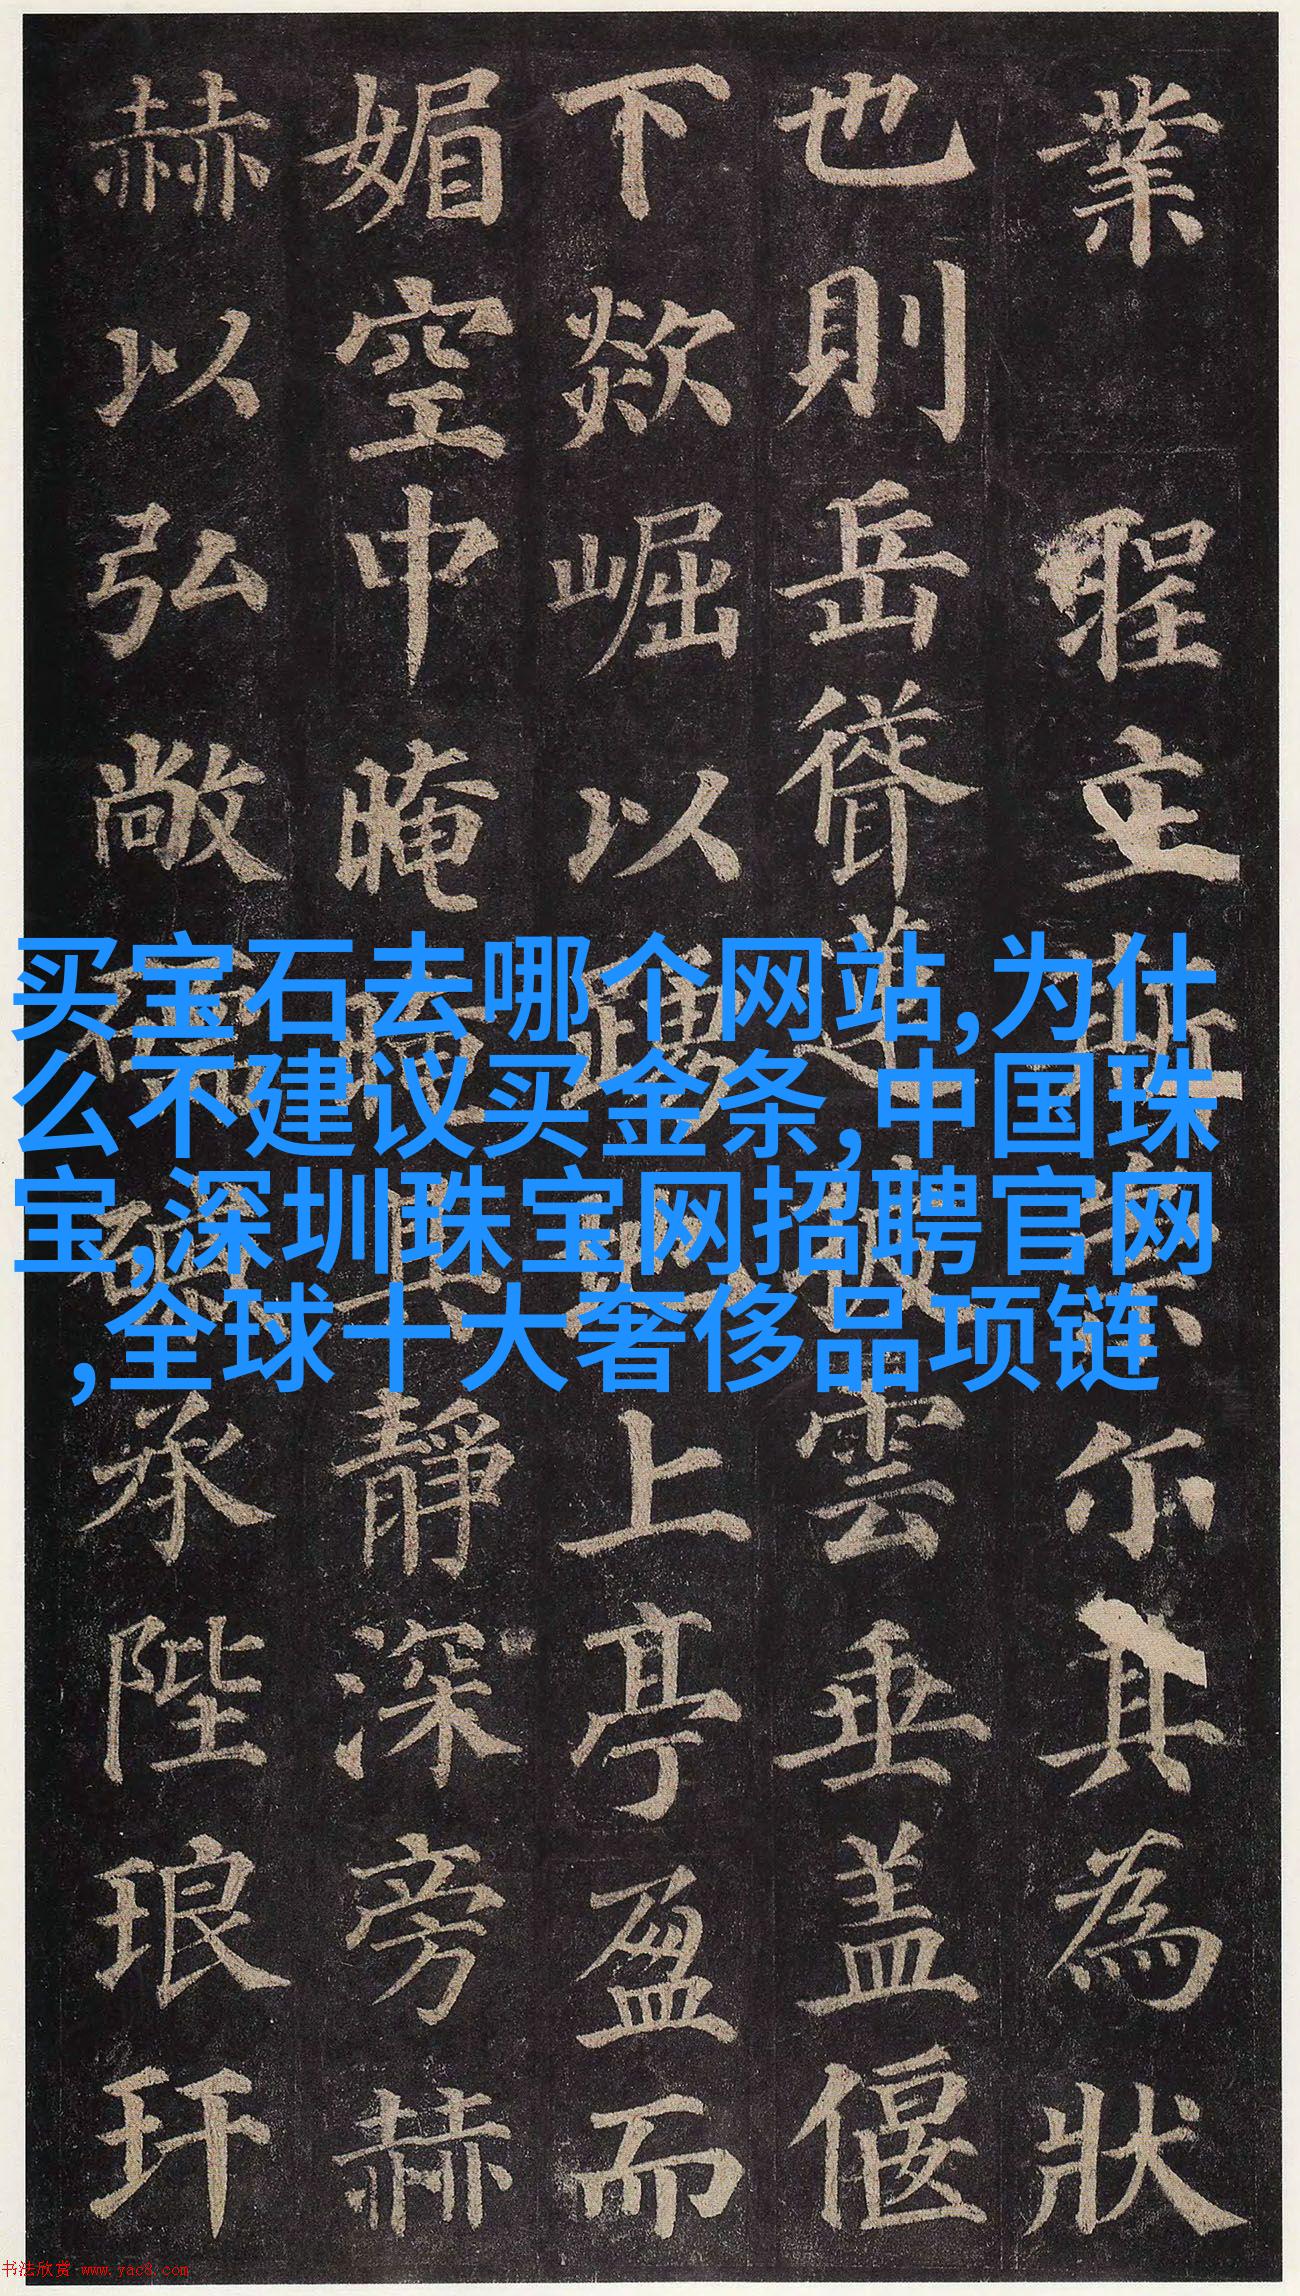 業聖主斯崇尔其為狀
也則岳聳蓮披雲垂蓋偃
下欻崛以踴地上亭盈而
媚空中晻晻其靜深旁赫
赫以弘敞礝磩承陛琅玕
买宝石去哪个网站,为什
么不建议买金条,中国珠
宝,深圳珠宝网招聘官网
,全球十大奢侈品项链
书法欣赏 www.yac8.com